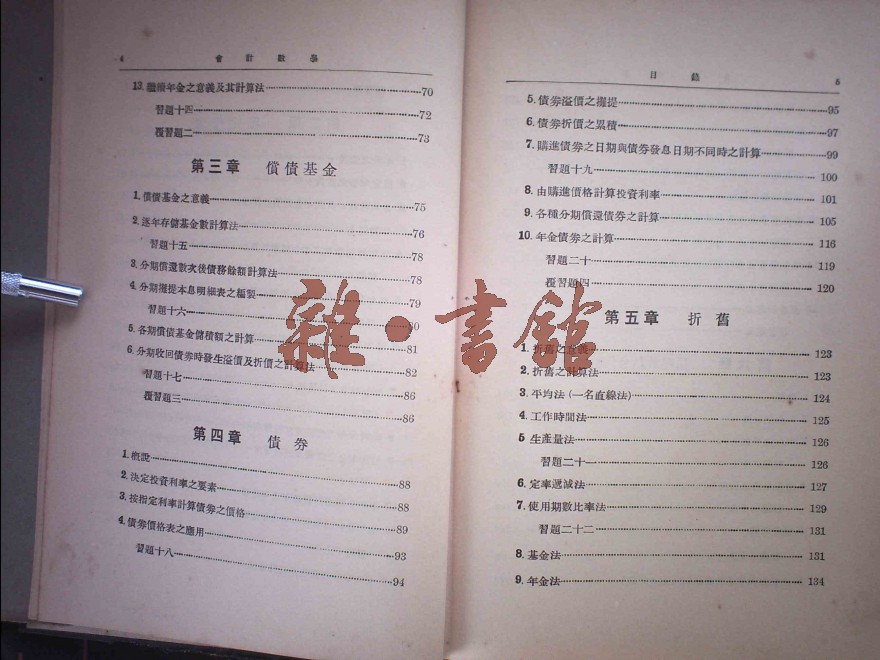 4 會計數學
13. 繼續年金之意義及其計算法 70
習題十四 72
覆習題二 73
第三章 償債基金
1. 償債基金之意義 75
2. 逐年存儲基金數計算法 76
習題十五 78
3. 分期償還數次後債務餘額計算法 78
4. 分期攤提本息明細表之編製 79
習題十六 80
5. 各期償債基金儲積額之計算 81
6. 分期收回債券時發生溢價及折價之計算法 82
習題十七 86
覆習題三 86
第四章 債券
1. 概說 88
2. 決定投資利率之要素 88
3. 按指定利率計算債券之價格 89
4. 債券價格表之應用 93
習題十八 94
目錄 5
5. 債券溢價之攤提 95
6. 債券折價之累積 97
7. 購進債券之日期與債券發息日期不同時之計算 99
習題十九 100
8. 由購進價格計算投資利率 101
9. 各種分期償還債券之計算 105
10. 年金債券之計算 116
習題二十 119
覆習題四 120
第五章 折舊
1. 折舊之意義 123
2. 折舊之計算法 123
3. 平均法(一名直線法) 124
4. 工作時間法 125
5 生產量法 126
習題二十一 126
6. 定率遞減法 127
7. 使用期數比率法 129
習題二十二 131
8. 基金法 131
9. 年金法 134
雜·書館